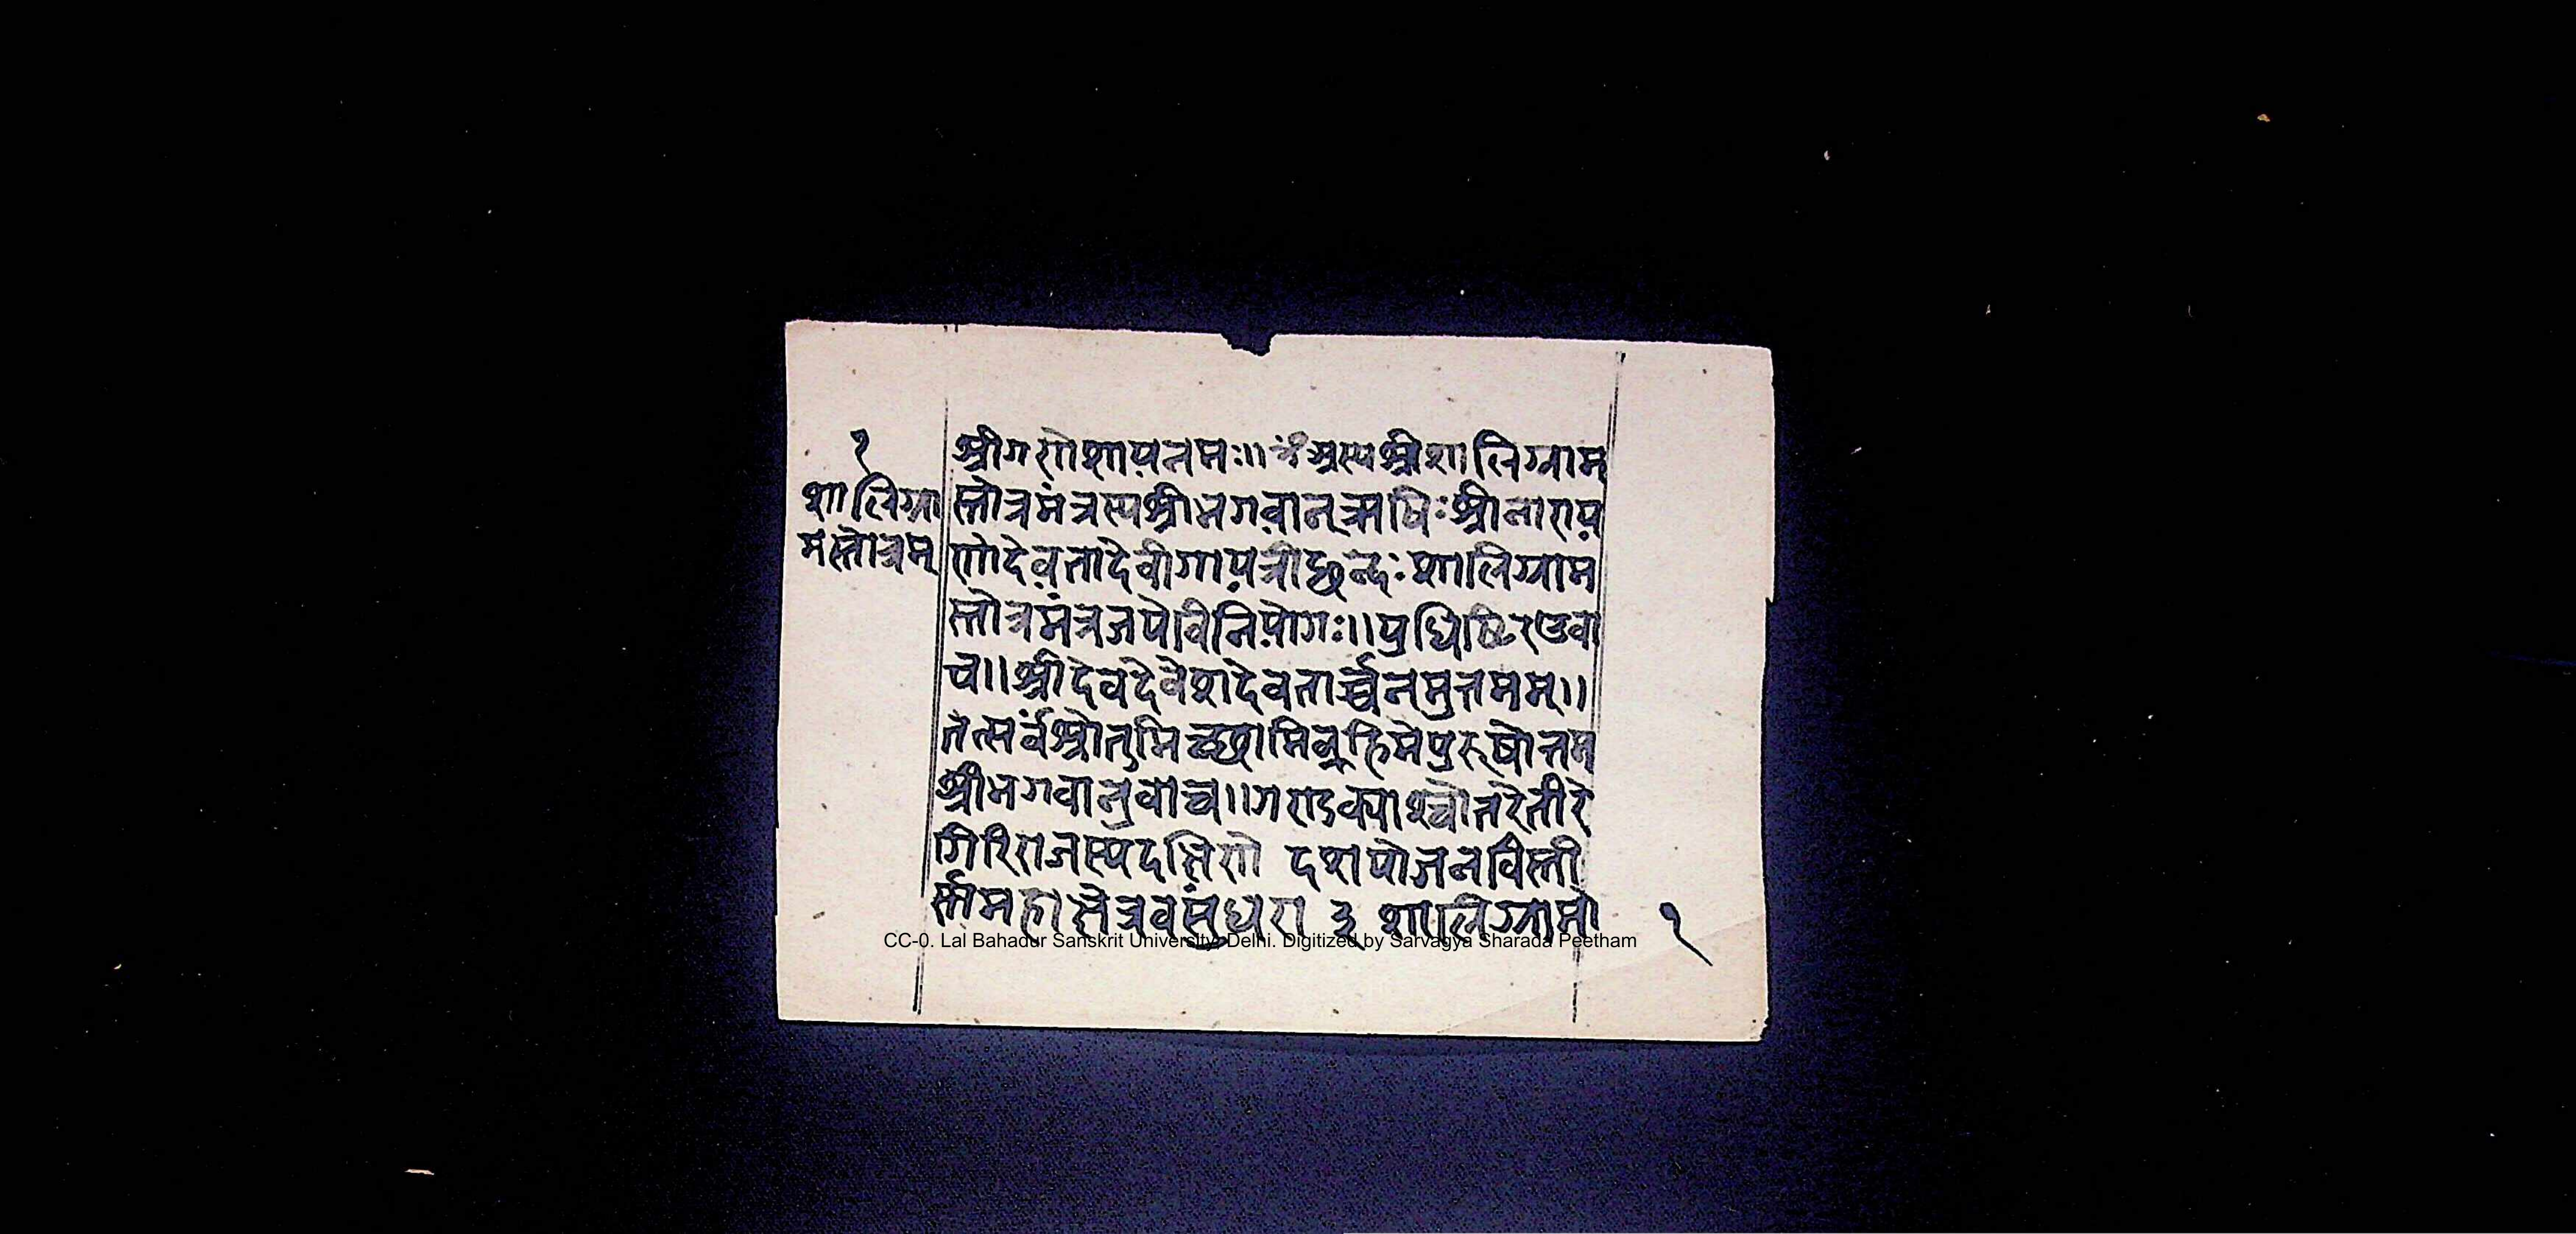 १
शालिग्रा
मस्तोत्रम्
श्रीगणेशायनमः॥ॐअस्यश्रीशालिग्राम
स्तोत्रमंत्रस्यश्रीभगवान्ऋषिःश्रीनाराय
णोदेवतादेवीगायत्रीछन्दःशालिग्राम
स्तोत्रमंत्रजपेविनियोगः॥युधिष्ठिरउवा
च॥श्रीदेवदेवेशदेवतार्च्चनमुत्तमम्॥
तत्सर्वंश्रोतुमिच्छामिब्रूहिमेपुरुषोत्तम
श्रीभगवानुवाच॥गण्डक्याश्चोत्तरेतीरे
गिरिराजस्यदक्षिणे दशयोजनविस्ती
र्णामहाक्षेत्रवसुंधरा ३ शालिग्रामो
१
CC-0. Lal Bahadur Sanskrit University, Delhi. Digitized by Sarvagya Sharada Peetham